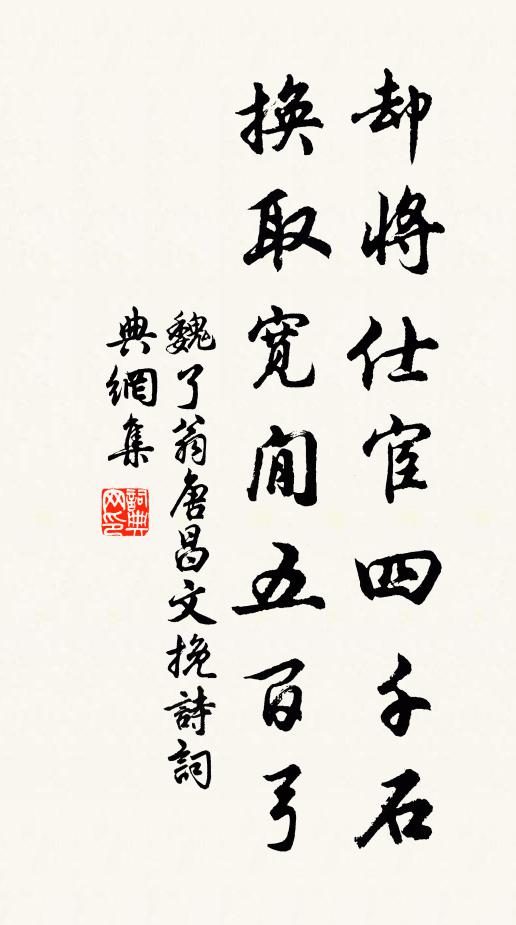 却將仕宦四千石
換取寬閒五百弓
魏了翁唐昌文挽詩詞
典網集
詞典
网印